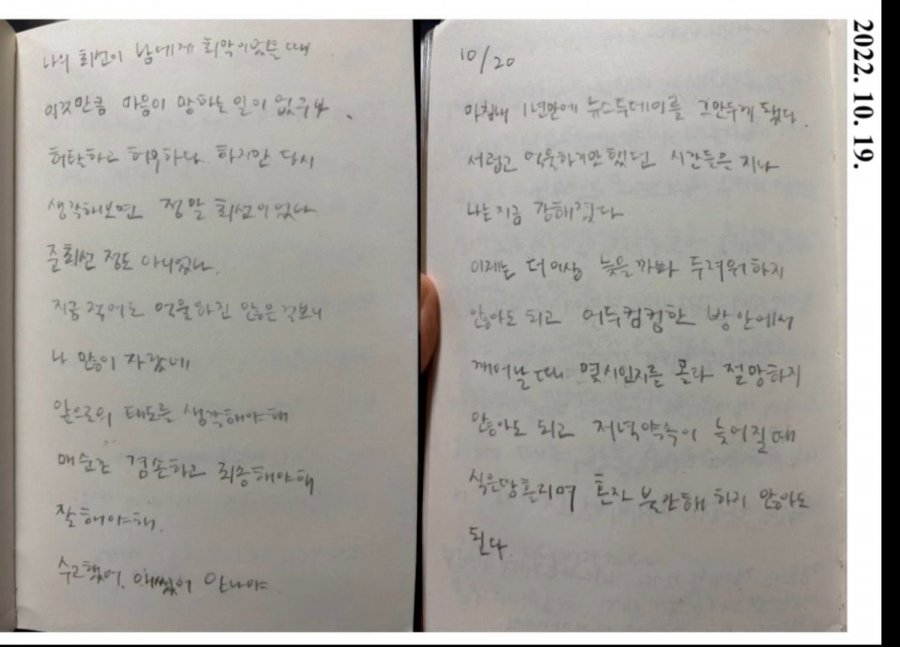 나의 최선이 남에게 최악이었을 때
이것만큼 마음이 망하는 일이 없구나.
허탈하고 허무하다 하지만 다시
생각해보면 정말 최선이었나
준최선 정도 아니었나.
지금 적어도 억울하진 않은 걸 보니
나 많이 자랐네
앞으로의 태도를 생각해야 해
매순간 겸손하고 죄송해야 해
잘해야 해.
수고했어. 애썼어 안나야.
10/20
마침내 1년만에 뉴스투데이를 그만두게 됐다.
서럽고 억울하기만 했던 시간들은 지나
나는 지금 강해졌다
이제는 더이상 늦을까봐 두려워하지
않아도 되고 어두컴컴한 방안에서
깨어날 때 몇시인지를 몰라 절망하지
않아도 되고 저녁약속이 늦어질 때
식은땀 흘리며 혼자 불안해 하지 않아도
된다.
2022. 10. 19.